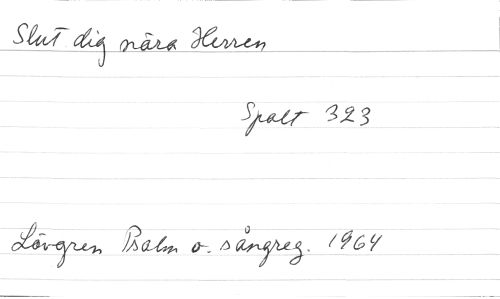 Slut dig nära Herren
Spalt 323
Lövgren Psalm o. sångreg. 1964